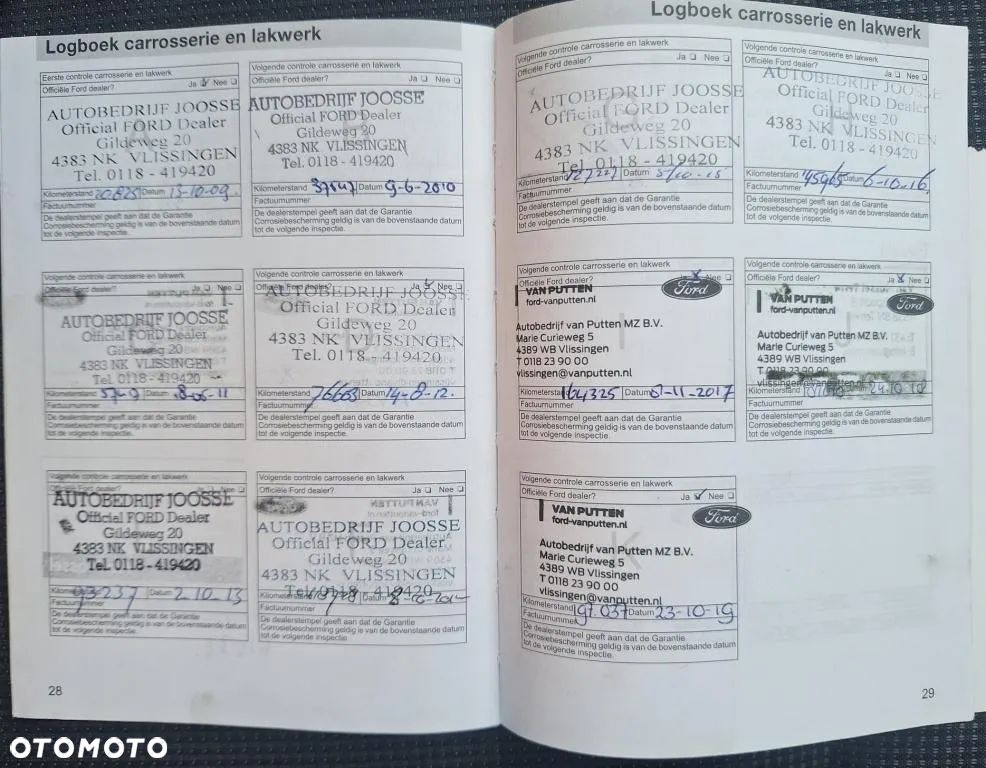 Logboek carrosserie en lakwerk
Eerste controle carrosserie en lakwerk
Officiële Ford dealer? Ja Nee
AUTOBEDRIJF JOOSSE
Official FORD Dealer
Gildeweg 20
4383 NK VLISSINGEN
Tel. 0118 - 419420
Kilometerstand Datum 13-10-09
Factuurnummer
De dealerstempel geeft aan dat de Garantie
Corrosiebescherming geldig is van bovenstaande datum
tot de volgende inspectie.
Volgende controle carrosserie en lakwerk
Officiële Ford dealer? Ja Nee
AUTOBEDRIJF JOOSSE
Official FORD Dealer
Gildeweg 20
4383 NK VLISSINGEN
Tel. 0118 - 419420
Kilometerstand 37547 Datum 9-6-2010
Factuurnummer
De dealerstempel geeft aan dat de Garantie
Corrosiebescherming geldig is van bovenstaande datum
tot de volgende inspectie.
Volgende controle carrosserie en lakwerk
Officiële Ford dealer? Ja Nee
AUTOBEDRIJF JOOSSE
Official FORD Dealer
Gildeweg 20
4383 NK VLISSINGEN
Tel. 0118 - 419420
Kilometerstand Datum 8-06-11
Factuurnummer
De dealerstempel geeft aan dat de Garantie
Corrosiebescherming geldig is van bovenstaande datum
tot de volgende inspectie.
Volgende controle carrosserie en lakwerk
Officiële Ford dealer? Ja Nee
AUTOBEDRIJF JOOSSE
Official FORD Dealer
Gildeweg 20
4383 NK VLISSINGEN
Tel. 0118 - 419420
Kilometerstand 76663 Datum 14-8-12.
Factuurnummer
De dealerstempel geeft aan dat de Garantie
Corrosiebescherming geldig is van bovenstaande datum
tot de volgende inspectie.
Volgende controle carrosserie en lakwerk
Officiële Ford dealer? Ja Nee
AUTOBEDRIJF JOOSSE
Official FORD Dealer
Gildeweg 20
4383 NK VLISSINGEN
Tel. 0118 - 419420
Kilometerstand 93237 Datum 2-10-13
Factuurnummer
De dealerstempel geeft aan dat de Garantie
Corrosiebescherming geldig is van bovenstaande datum
tot de volgende inspectie.
Volgende controle carrosserie en lakwerk
Officiële Ford dealer? Ja Nee
AUTOBEDRIJF JOOSSE
Official FORD Dealer
Gildeweg 20
4383 NK VLISSINGEN
Tel. 0118 - 419420
Kilometerstand Datum
Factuurnummer
De dealerstempel geeft aan dat de Garantie
Corrosiebescherming geldig is van bovenstaande datum
tot de volgende inspectie.
28
Logboek carrosserie en lakwerk
Volgende controle carrosserie en lakwerk
Officiële Ford dealer? Ja Nee
AUTOBEDRIJF JOOSSE
Official FORD Dealer
Gildeweg 20
4383 NK VLISSINGEN
Tel. 0118 - 419420
Kilometerstand Datum 5/10-15
Factuurnummer
De dealerstempel geeft aan dat de Garantie
Corrosiebescherming geldig is van bovenstaande datum
tot de volgende inspectie.
Volgende controle carrosserie en lakwerk
Officiële Ford dealer? Ja Nee
AUTOBEDRIJF JOOSSE
Official FORD Dealer
Gildeweg 20
4383 NK VLISSINGEN
Tel. 0118 - 419420
Kilometerstand 145965 Datum 6-10-16
Factuurnummer
De dealerstempel geeft aan dat de Garantie
Corrosiebescherming geldig is van bovenstaande datum
tot de volgende inspectie.
Volgende controle carrosserie en lakwerk
Officiële Ford dealer? Ja Nee
VAN PUTTEN
ford-vanputten.nl
Ford
Autobedrijf van Putten MZ B.V.
Marie Curieweg 5
4389 WB Vlissingen
T 0118 23 90 00
vlissingen@vanputten.nl
Kilometerstand 164325 Datum 01-11-2017
Factuurnummer
De dealerstempel geeft aan dat de Garantie
Corrosiebescherming geldig is van bovenstaande datum
tot de volgende inspectie.
Volgende controle carrosserie en lakwerk
Officiële Ford dealer? Ja Nee
VAN PUTTEN
ford-vanputten.nl
Ford
Autobedrijf van Putten MZ B.V.
Marie Curieweg 5
4389 WB Vlissingen
T 0118 23 90 00
vlissingen@vanputten.nl
Kilometerstand Datum 24.10.18
Factuurnummer
De dealerstempel geeft aan dat de Garantie
Corrosiebescherming geldig is van bovenstaande datum
tot de volgende inspectie.
Volgende controle carrosserie en lakwerk
Officiële Ford dealer? Ja Nee
VAN PUTTEN
ford-vanputten.nl
Ford
Autobedrijf van Putten MZ B.V.
Marie Curieweg 5
4389 WB Vlissingen
T 0118 23 90 00
vlissingen@vanputten.nl
Kilometerstand 191.037 Datum 23-10-19
Factuurnummer
De dealerstempel geeft aan dat de Garantie
Corrosiebescherming geldig is van bovenstaande datum
tot de volgende inspectie.
29
OTOMOTO